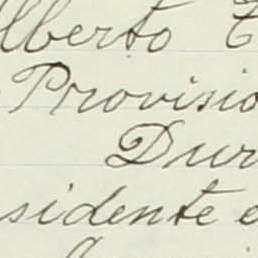 lberto E
Provisio
Dur
sidente e